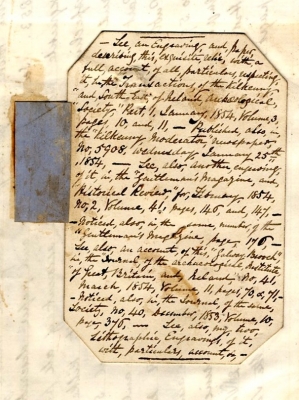 — See an Engraving, and paper,
describing this, exquisite, relic, with a
full account, of all particulars, respecting,
it in the Transactions, of the Kilkenny,
and South East, of Ireland, Archæological,
Society, Part, 1, January, 1854, Volume, 3,
pages, 10, and, 11, — Published, also, in
the "Kilkenny Moderator" newspaper
No, 5908, Wednesday, January, 25th
1854 — See, also, another, engraving,
of it, in, the "Gentleman's Magazine and
Historical Review" for, February, 1854,
No, 2, Volume, 41, pages, 146, and, 147, —
— Noticed, also, in the same, number, of the
"Gentleman's Magazine, page, 176, —
See also, an account, of this, "Galway, Brooch"
in, the "Journal, of the archæological, Institute
of Great, Britain, and, Ireland," No, 41,
March, 1854, Volume, 11, pages, 70, & 71, —
— Noticed, also, in the Journal, of the same,
Society, No, 40, December, 1853, Volume, 10,
page, 376, — See, also, my, two,
Lithographic, Engravings, of it,
with, particulars, account, by —